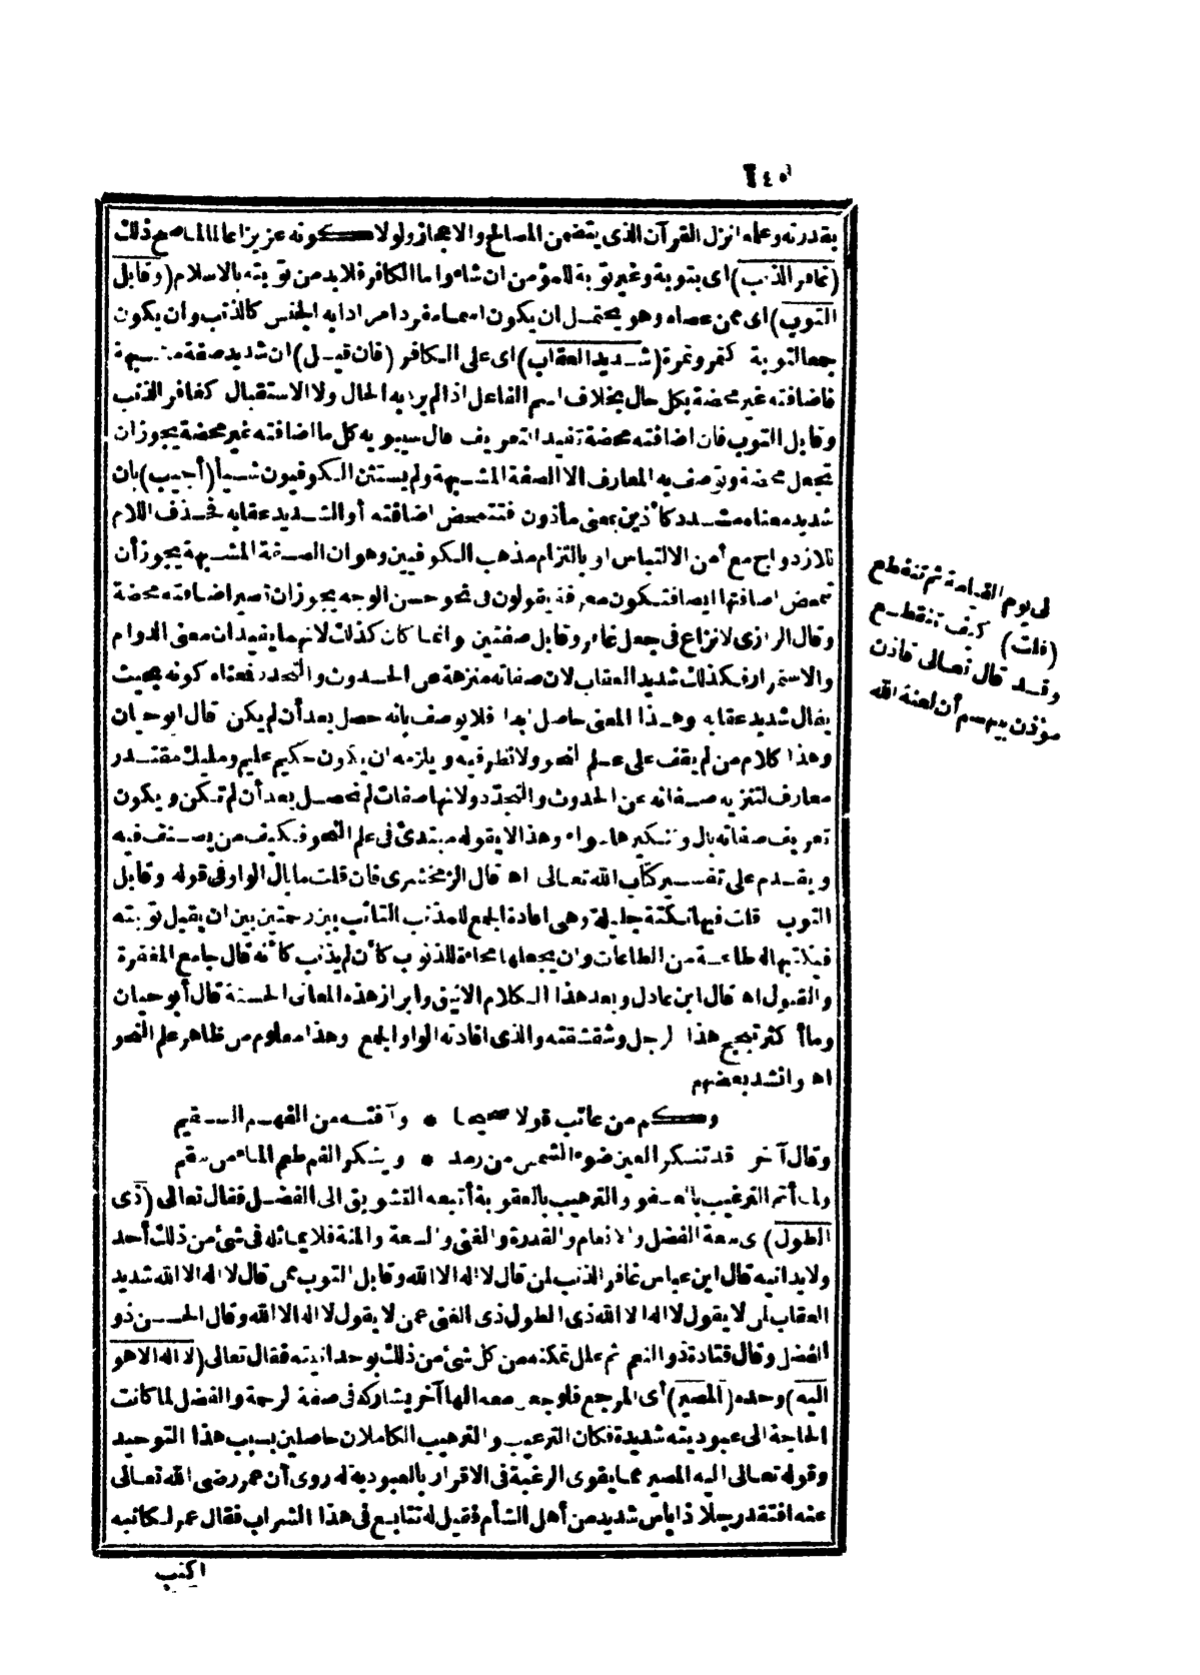 ٥٤٦
بقدرته وعلمه انزل القرآن الذى يتضمن المصالح والاعجاز ولولا كونه عزيزا عالما لما صح ذلك
(غافر الذنب) اى بتوبة وغير توبة للمؤمن ان شاء واما الكافر فلابد من توبته بالاسلام (وقابل
التوب) اى ممن عصاه وهو يحتمل ان يكون اسما مفردا مرادا به الجنس كالذنب وان يكون
جمعا لتوبة كتمر وتمرة (شديد العقاب) اى على الكافر (فان قيل) ان شديد صفة مشبهة
فاضافته غير محضة بكل حال بخلاف اسم الفاعل اذا لم يرد به الحال ولا الاستقبال كغافر الذنب
وقابل التوب فان اضافته محضة تفيد التعريف قال سيبويه كل ما اضافته غير محضة يجوز ان
تجعل محضة وتوصف به المعارف الا الصفة المشبهة ولم يستثن الكوفيون شيأ (أجيب) بان
شديد معناه مشدد كأذين بمعنى مأذون فتتمحض اضافته أو الشديد عقابه فحذف اللام
للازدواج مع أمن الالتباس او بالتزام مذهب الكوفيين وهو ان الصفة المشبهة يجوز أن
تتمحض اضافتها ايضا فتكون معرفة يقولون فى نحو حسن الوجه يجوز ان تصير اضافته محضة
وقال الرازى لا نزاع فى جعل غافر وقابل صفتين وانما كان كذلك لانهما يفيدان معنى الدوام
والاستمرار فكذلك شديد العقاب لان صفاته منزهة عن الحدوث والتجدد فمعناه كونه بحيث
يقال شديد عقابه وهذا المعنى حاصل ابدا فلا يوصف بانه حصل بعد أن لم يكن قال ابو حيان
وهذا كلام من لم يقف على علم النحو ولا نظر فيه ويلزمه ان يكون حكيم عليم ومليك مقتدر
معارف لتنزيه صفاته عن الحدوث والتجدد ولانها صفات لم تحصل بعد أن لم تكن ويكون
تعريف صفاته بال وتنكيرها سواء وهذا لا يقوله مبتدئ فى علم النحو فكيف من يصنف فيه
ويقدم على تفسير كتاب الله تعالى اه قال الزمخشرى فان قلت ما بال الواو فى قوله وقابل
التوب قلت فيها نكتة جليلة وهى افادة الجمع للمذنب التائب بين رحمتين بين ان يقبل توبته
فيكتبها له طاعة من الطاعات وان يجعلها محاءة للذنوب كأن لم يذنب كأنه قال جامع المغفرة
والقبول اه قال ابن عادل وبعد هذا الكلام الانيق وابراز هذه المعانى الحسنة قال أبو حيان
وما أكثر تبجح هذا الرجل وشقشقته والذى افادته الواو الجمع وهذا معلوم من ظاهر علم النحو
اه وانشد بعضهم
وكم من عائب قولا صحيحا • وآفته من الفهم السقيم
وقال آخر قد تنكر العين ضوء الشمس من رمد • وينكر الفم طعم الماء من سقم
ولما أتم الترغيب بالعفو والترهيب بالعقوبة أتبعه التشويق الى الفضل فقال تعالى (ذى
الطول) اى سعة الفضل والانعام والقدرة والغنى والسعة والمنة فلا يماثله فى شئ من ذلك أحد
ولا يدانيه قال ابن عباس غافر الذنب لمن قال لا اله الا الله وقابل التوب ممن قال لا اله الا الله شديد
العقاب لمن لا يقول لا اله الا الله ذى الطول ذى الغنى عمن لا يقول لا اله الا الله وقال الحسن ذو
الفضل وقال قتادة ذو النعم ثم علل تمكنه من كل شئ من ذلك بوحدانيته فقال تعالى (لا اله الا هو
اليه) وحده (المصير) أى المرجع فلو جعل معه الها آخر يشاركه فى صفة الرحمة والفضل لما كانت
الحاجة الى عبوديته شديدة فكان الترغيب والترهيب الكاملان حاصلين بسبب هذا التوحيد
وقوله تعالى اليه المصير مما يقوى الرغبة فى الاقرار بالعبودية له روى أن عمر رضى الله تعالى
عنه افتقد رجلا ذا بأس شديد من أهل الشأم فقيل له تتابع فى هذا الشراب فقال عمر لكاتبه
اكتب
لى يوم القيامة ثم تنقطع
(قلت) كيف تنقطع
وقد قال تعالى فاذن
مؤذن بينهم أن لعنة الله